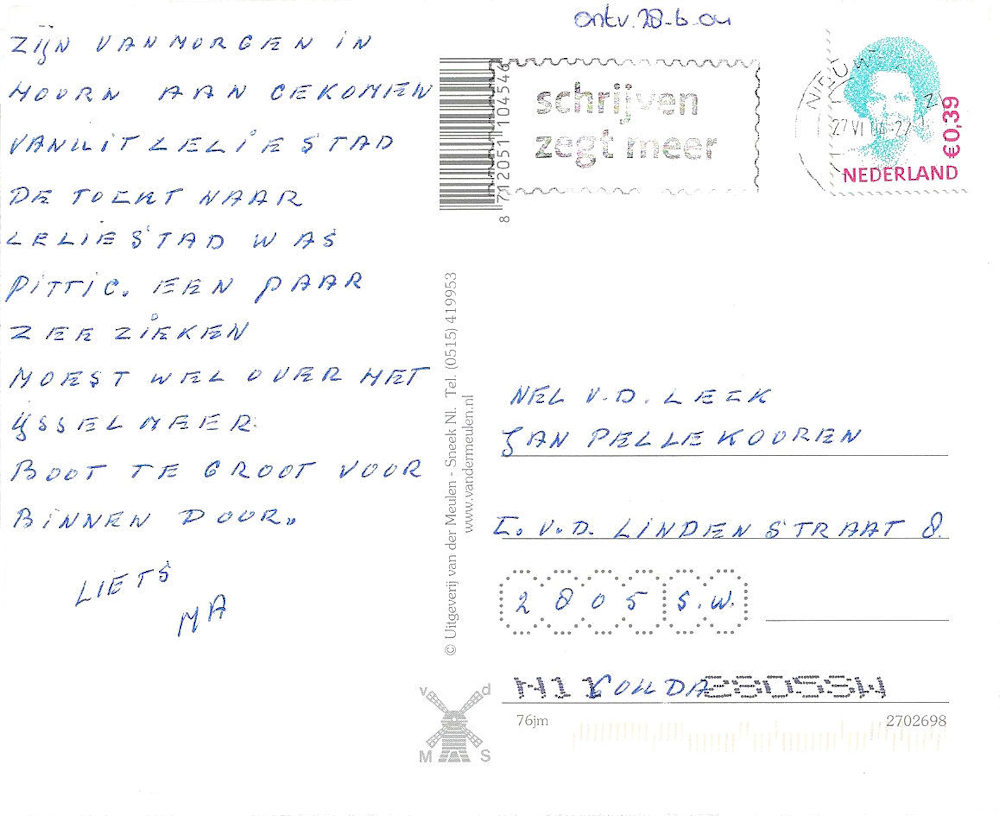 ontv. 28-6-04
ZIJN VANMORGEN IN
HOORN AAN GEKOMEN
VANUIT LELIESTAD
DE TOCHT NAAR
LELIESTAD WAS
PITTIG. EEN PAAR
ZEE ZIEKEN
MOEST WEL OVER HET
IJSSELMEER.
BOOT TE GROOT VOOR
BINNEN DOOR.
LIETS
MA
8 712051 104546
schrijven
zegt meer
27 VI
€0,39
NEDERLAND
© Uitgeverij van der Meulen - Sneek Nl. Tel. (0515) 419953
www.vandermeulen.nl
NEL V.D. LEEK
JAN PELLEKOOREN
C. V.D. LINDENSTRAAT 8.
2805 S.W.
GOUDA
2805SW
v d
M S
76jm
2702698